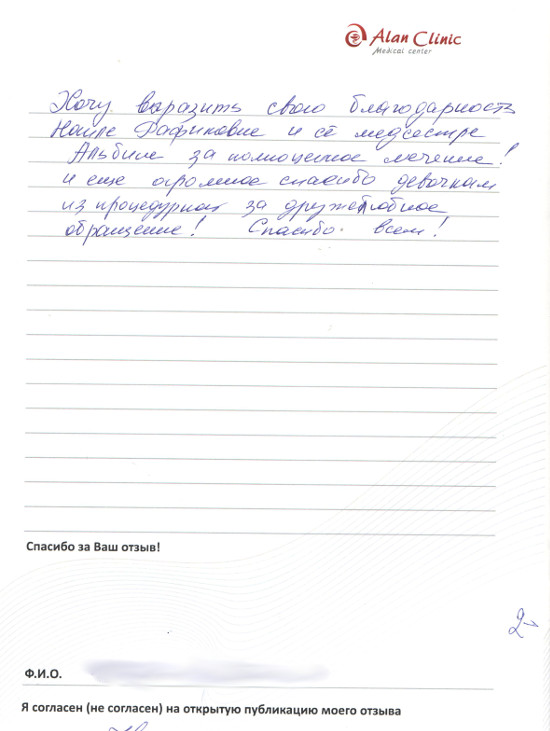 Alan Clinic
Medical center
Хочу выразить свою благодарность
Наиле Рафиковне и её медсестре
Альбине за полноценное лечение!
и еще огромное спасибо девочкам
из процедурной за дружелюбное
обращение! Спасибо всем!
Спасибо за Ваш отзыв!
Ф.И.О.
Я согласен (не согласен) на открытую публикацию моего отзыва